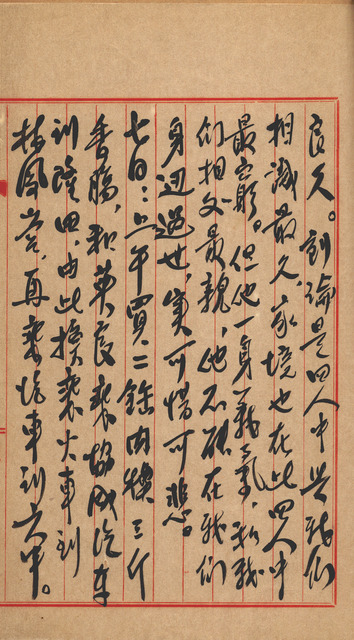 良久。劉論是四人中與我們
相識最久，家境也在此四人中
最窮。但他一身義氣，和我
們相交最親，他不能在我們
身边過世，實可惜可悲。
七日：上午買二鎊肉換三斤
香腸，和英良乘協成汽車
到隆田，由此換乘火車到
林鳳营，再乘汽車到六甲。